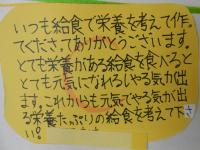 いつも給食で栄養を考えて作っ
てくださってありがとうございます。
とても栄養がある給食を食べると
とても元気になれるしやる気が出
ます。これからも元気でやる気が出
る栄養たっぷりの給食を考えて下さ
い。